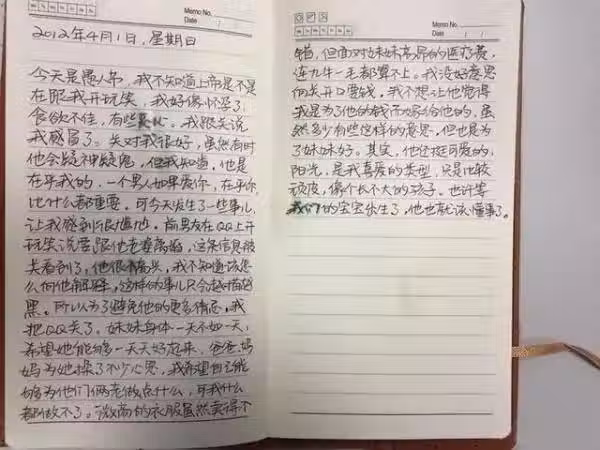 Memo No.
Date / /
2012年4月1日，星期日
今天是愚人节，我不知道上帝是不是
在跟我开玩笑，我好像怀孕了，
食欲不佳，有些
我感冒了。关对我很好，虽然有时
他会疑神疑鬼，但我知道，他是
在乎我的，一个男人如果爱你，在乎你
比什么都重要。可今天发生了一些事儿，
让我感到很尴尬，前男友在QQ上开
玩笑说要跟他老婆离婚，这条信息被
关看到了，他很不高兴，我不知道该怎
么向他解释，这样的事儿只会越描越
黑。所以为了避免他的更多猜忌，我
把QQ关了。妹妹身体一天不如一天，
希望她能够一天天好起来，爸爸妈
妈为她操了不少心思，我希望自己能
够为他们俩老做点什么，可我什么
都做不了。微商的衣服虽然卖得不
Memo No.
Date / /
错，但面对妹妹高昂的医疗费，
连九牛一毛都算不上。我没好意思
向关开口要钱，我不想让他觉得
我是为了他的钱而嫁给他的，虽
然多少有些这样的意思，但也是为
了妹妹好。其实，他还挺可爱的，
阳光，是我喜爱的类型，只是比较
顽皮，像个长不大的孩子。也许等
我们的宝宝出生了，他也就该懂事了。